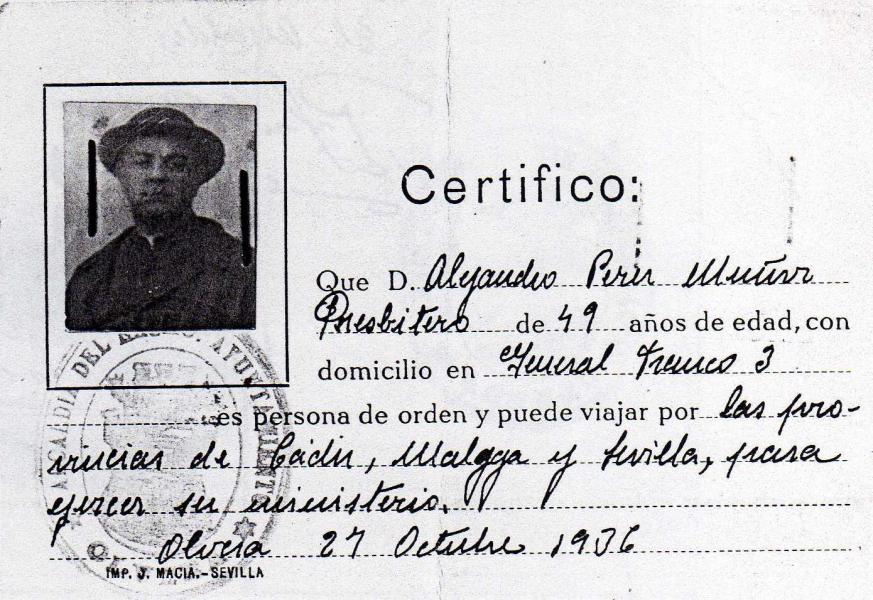 Certifico:
Que D. Alejandro Perez Muñoz
Presbitero de 49 años de edad, con
domicilio en General Franco 3
es persona de orden y puede viajar por las pro-
vincias de Cádiz, Malaga y Sevilla, para
ejercer su ministerio.
Olvera 27 Octubre 1936
ALCALDIA DEL EXCMO. AYUNTAMIENTO
IMP. J. MACIA.-SEVILLA